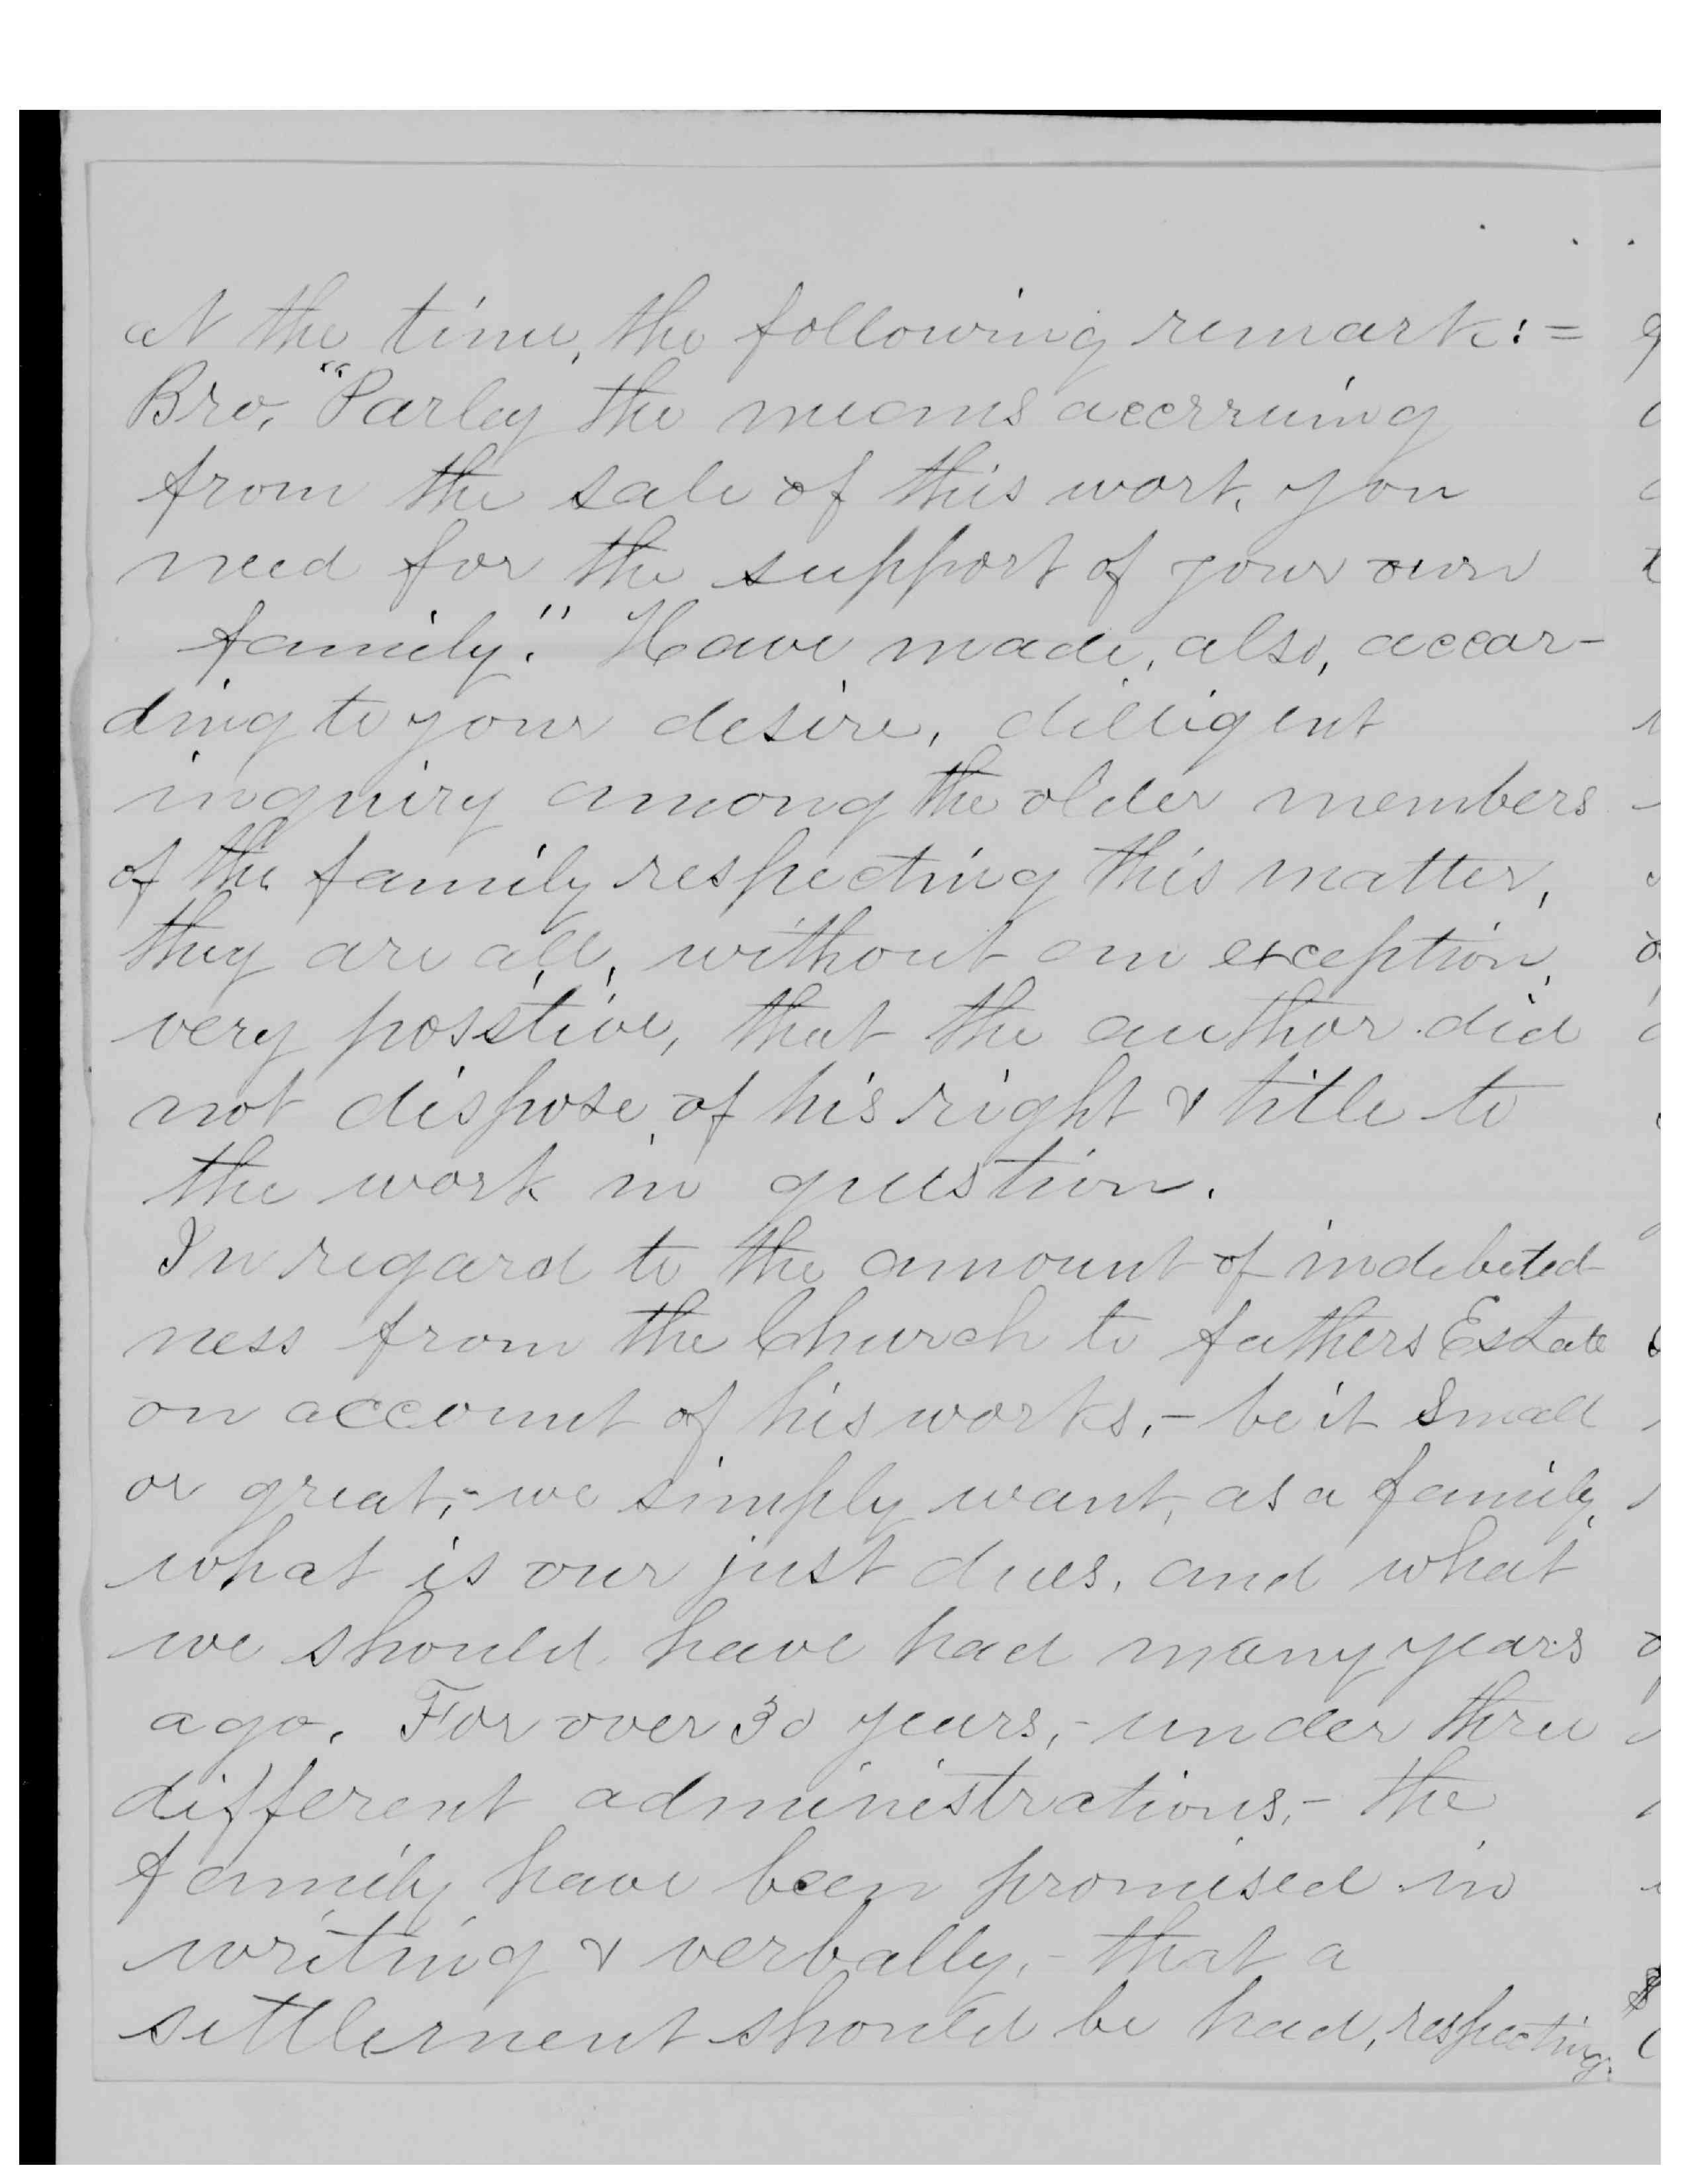 at the time, the following remark:=
Bro. "Parley the means accrruing
from the sale of this work, you
need for the support of your own
family." Have made, also, accor-
ding to your desire, dilligent
inquiry among the older members
of the family respecting this matter,
they are all, without an exception,
very posstive, that the author did
not dispose of his right & title to
the work in question.
In regard to the amount of indebted-
ness from the Church to fathers Estate
on account of his works,- be it small
or great,- we simply want, as a family,
what is our just dues, and what
we should have had many years
ago. For over 30 years,- under three
different administrations,- the
family have been promised in
writing & verbally,- that a
settlement should be had, respecting